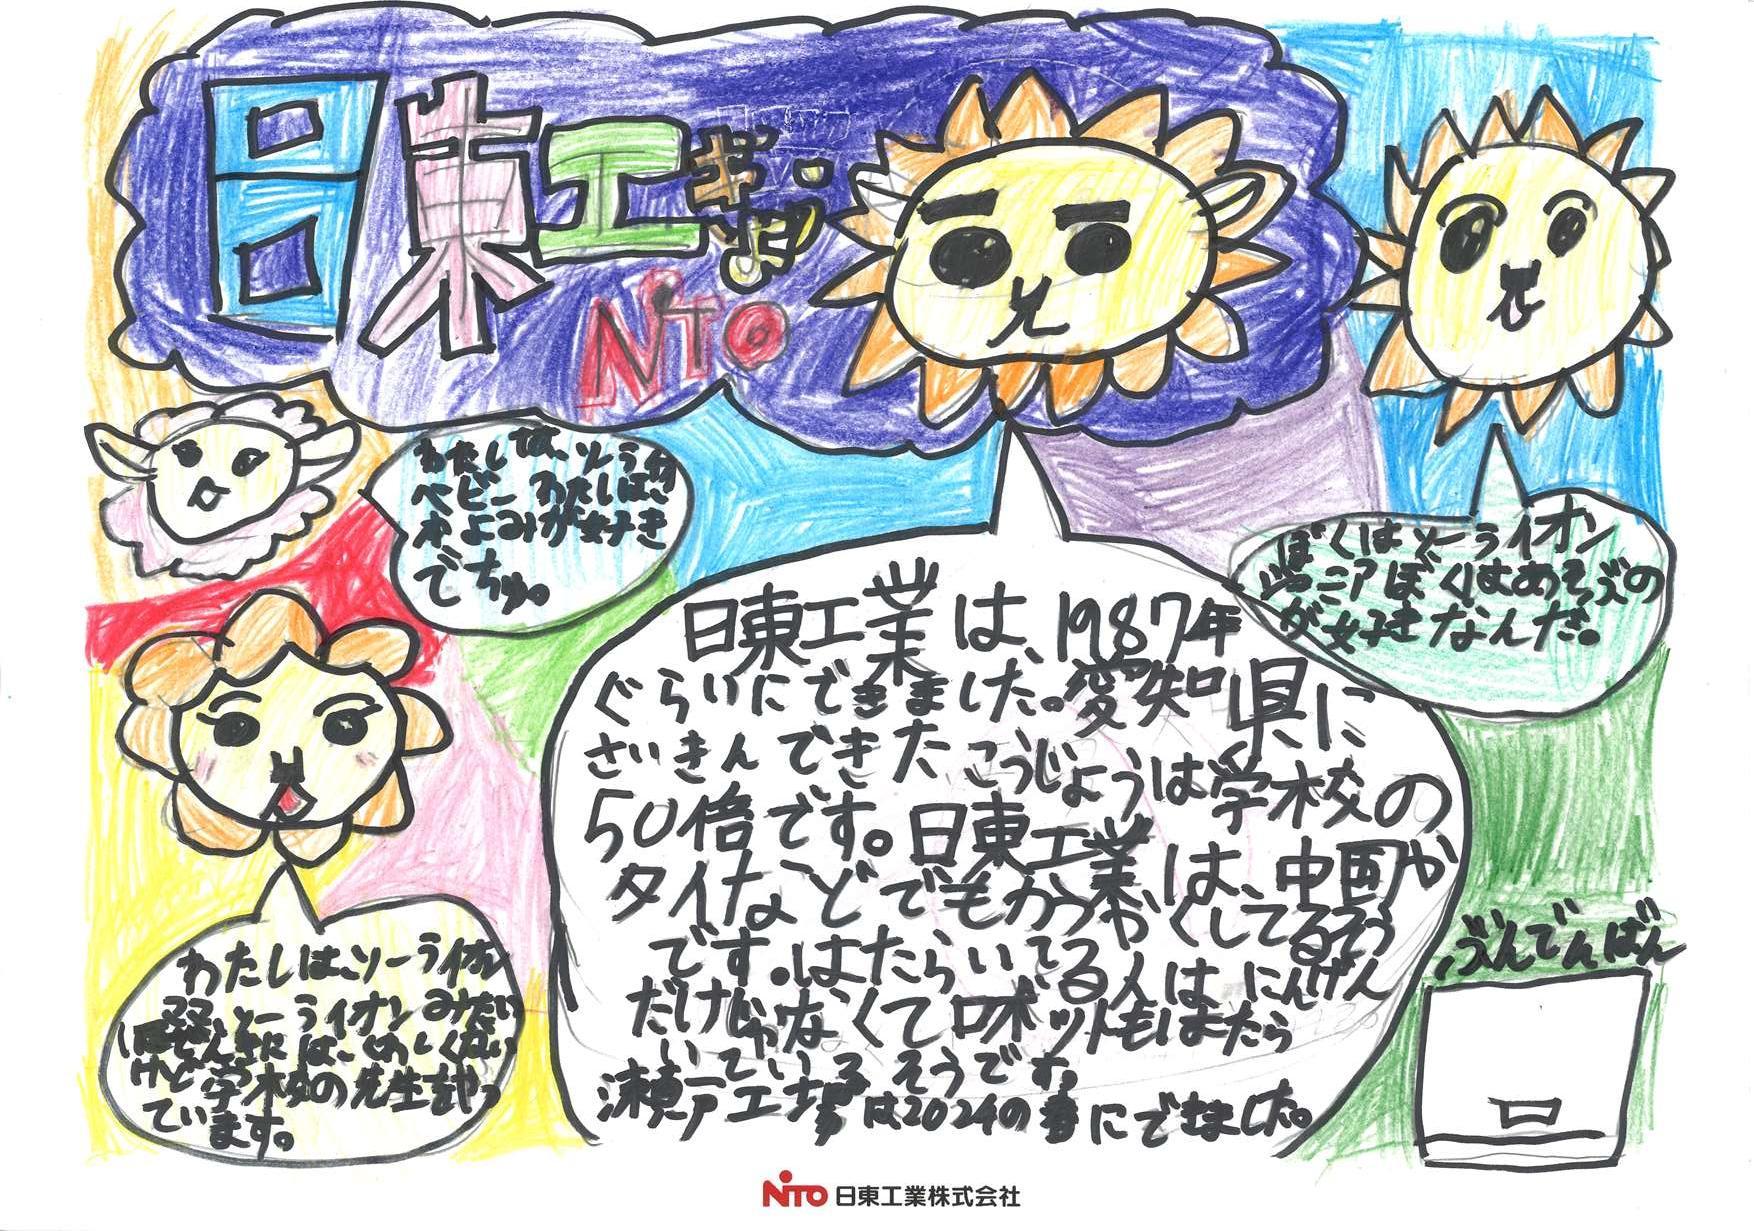 日東工ぎょう
NiTO
わたしは、ソーラ
ベビーわたしは
本よみが好き
でちゅ。
ぼくはソーライオン
ジュニアぼくはあそぶの
が好きなんだ。
日東工業は、1987年
ぐらいにできました。愛知県に
さいきんできたこうじょうは学校の
50倍です。日東工業は、中国や
タイなどでもかつやくしてるそう
です。はたらいてる人はにんげん
だけじゃなくてロボットもはたら
いているそうです。
瀬戸工場は2024の春にできました。
ぶんでんばん
わたしは、ソーライオン
ソーライオンみたい
にはくわしくない
けど学校の先生をやっ
ています。
NiTO 日東工業株式会社